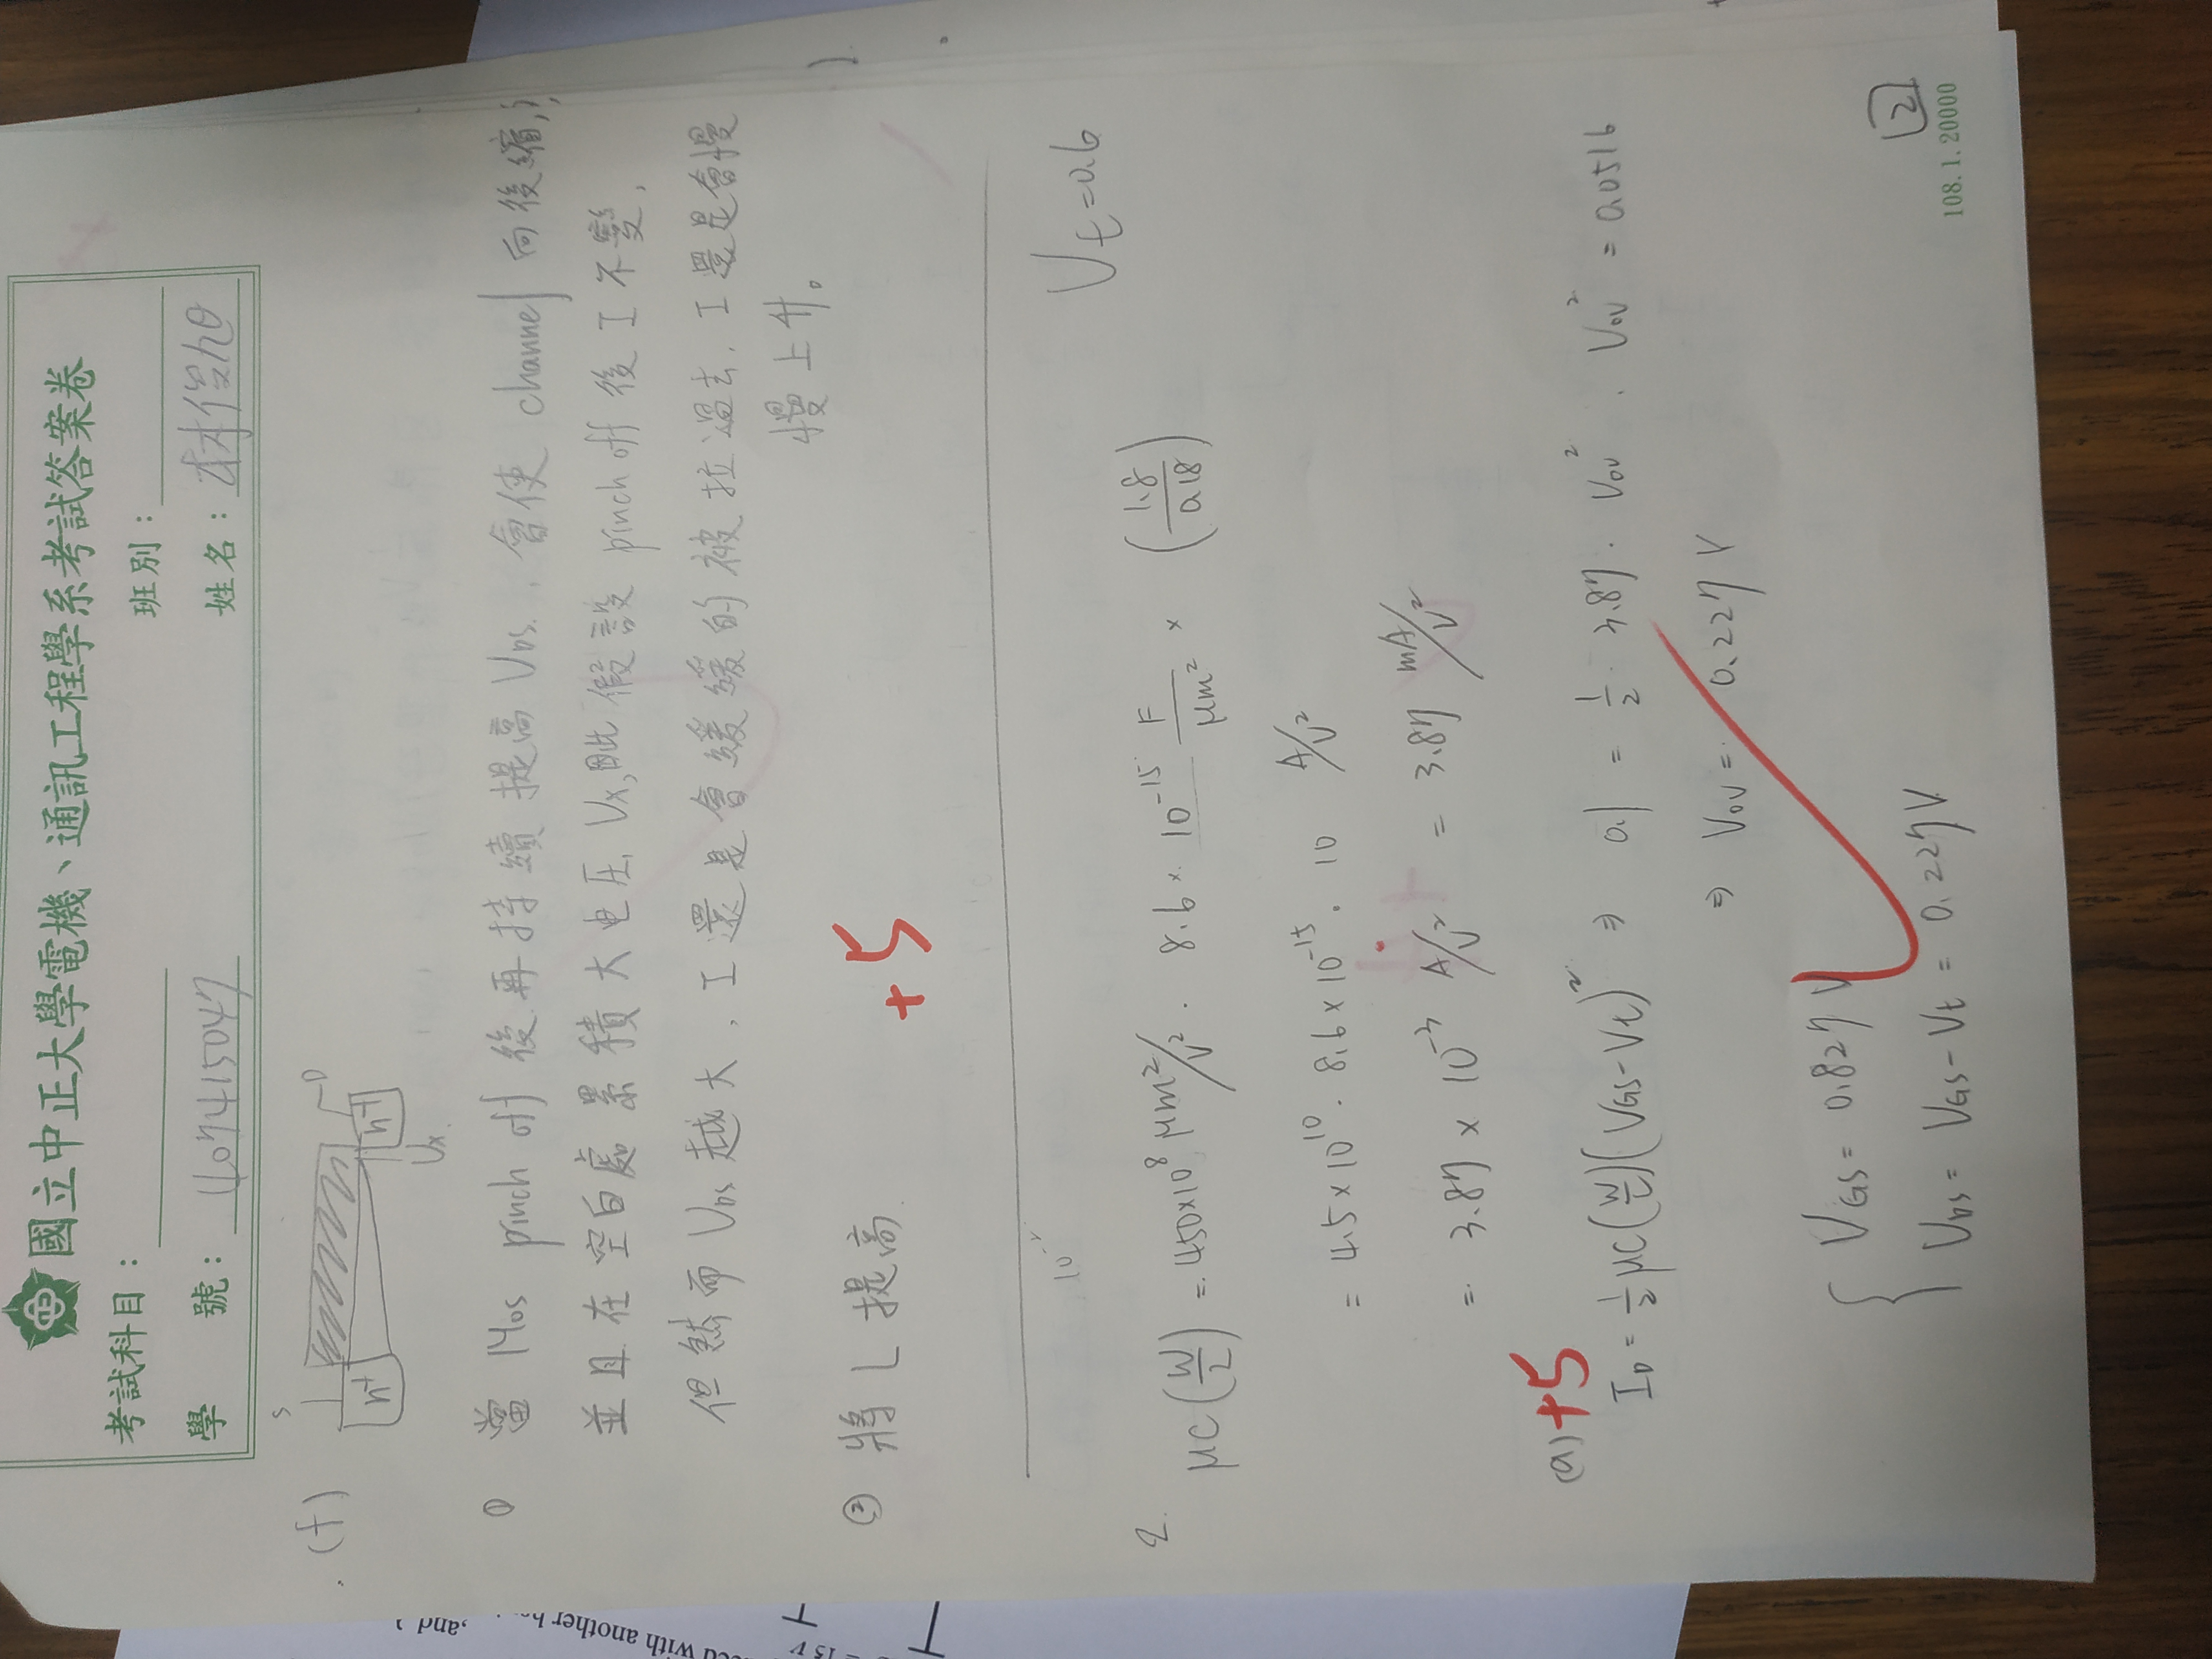 國立中正大學電機、通訊工程學系考試答案卷
考試科目：
班別：
學 號： 407415047
姓名： 林俊
(f)
S
D
n+
n+
Vx
① 當 Mos pinch off 後再持續提高 VDS, 會使 channel 向後縮,
並且在空白處累積大电压 Vx, 因此假設 pinch off 後 I 不變,
但然而 VDS 越大, I 還是會緩緩的被拉過去, I 還是會慢
慢上升。
② 將 L 提高
+5
10⁻²
Vt=0.6
2.
μC(W/2) = 450×10⁸ μm²/V² · 8.6×10⁻¹⁵ F/μm² × (1.8/0.18)
= 4.5×10¹⁰ · 8.6×10⁻¹⁵ · 10 A/V²
= 3.87 × 10⁻³ A/V² = 3.87 mA/V²
(a) +5
ID = 1/2 μC(W/L)(VGS-Vt)² ⇒ 0.1 = 1/2 · 3.87 · Vov², Vov² = 0.0516
⇒ Vov = 0.227 V
VGS = 0.827 V
VDS = VGS-Vt = 0.227V
2
108.1.20000
,and
ced with another
= 15 V